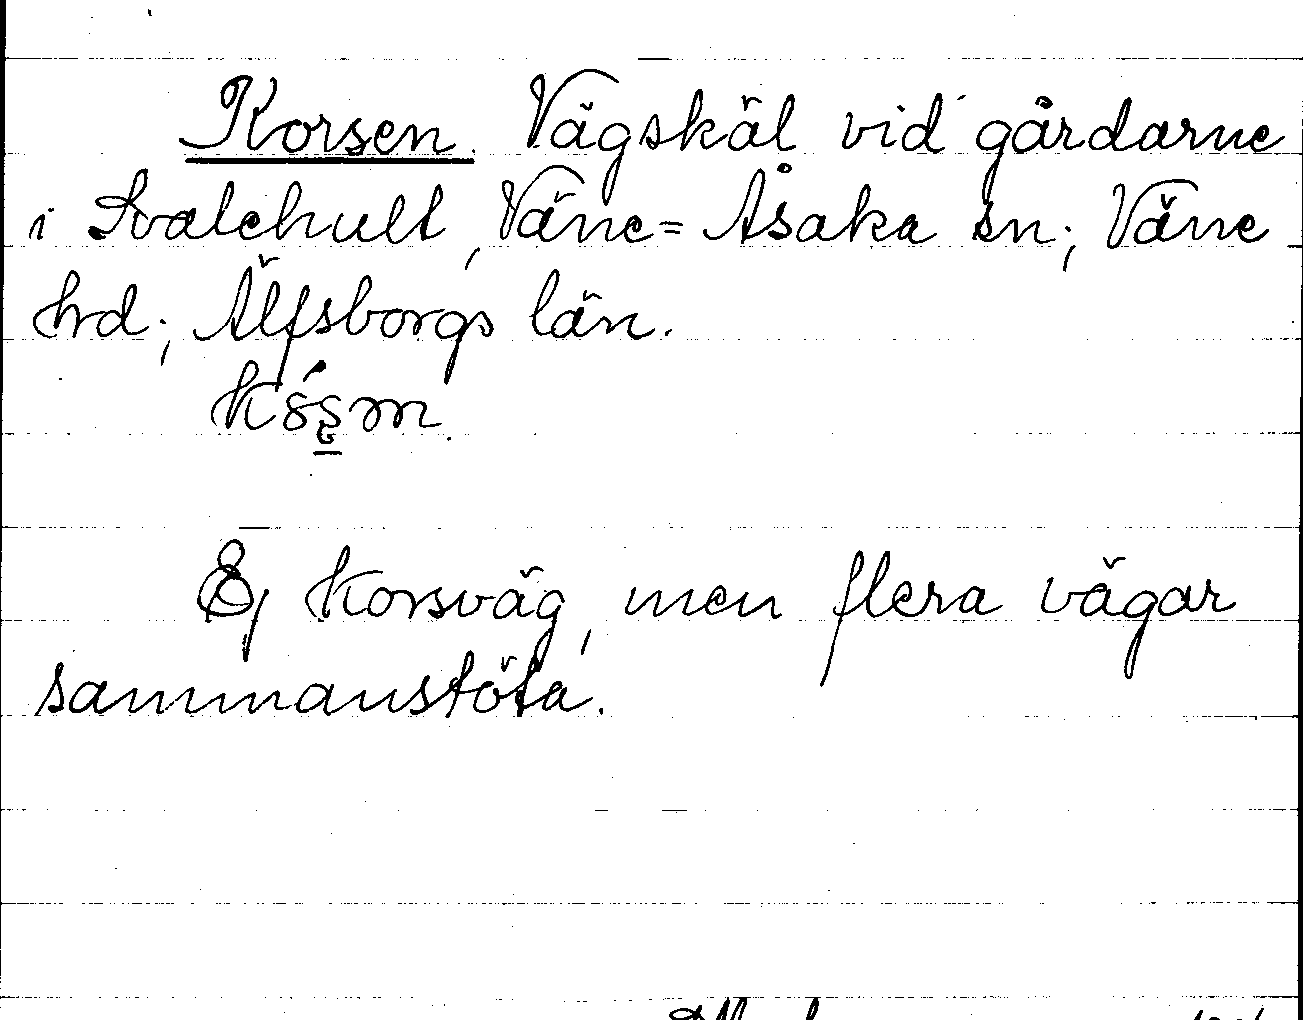 Korsen. Vägskäl vid gårdarne
i Svalehult, Väne=Åsaka sn; Väne
hrd; Älfsborgs län.
Ej korsväg, men flera vägar
sammanstöta.